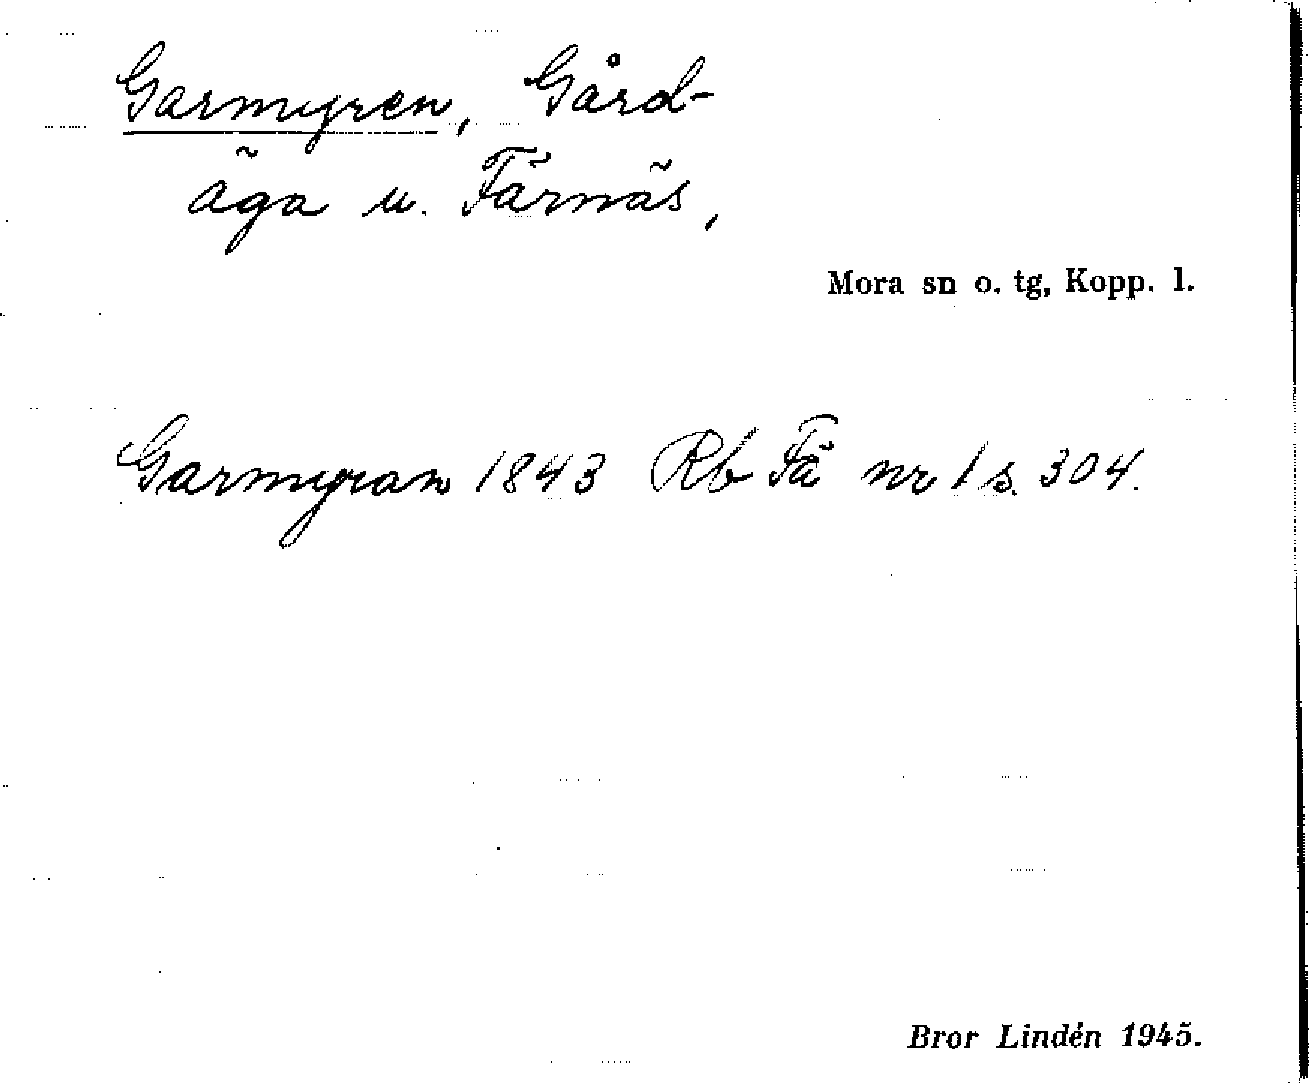 Garmyren, Gård-
äga u. Färnäs,
Mora sn o. tg, Kopp. l.
Garmyran 1843 Rb Fä nr 1 s. 304.
Bror Lindén 1945.